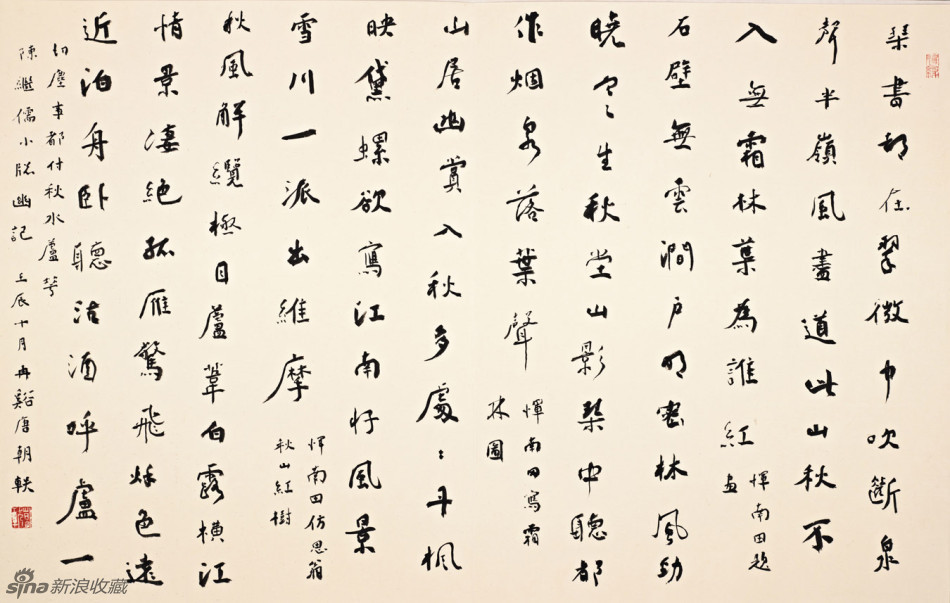 琹書都在翠微中吹斷泉
聲半嶺風盡道此山秋不
入無霜林葉為誰紅
惲南田題
畫
石壁無雲澗戶明密林風勁
曉寒生秋堂山影琹中聽都
作烟泉落葉聲
惲南田寫霜
林圖
山居幽賞入秋多處々丹楓
映黛螺欲寫江南好風景
雪川一派出維摩
惲南田仿思翁
秋山紅樹
秋風解纜極目蘆葦白露橫江
情景凄絕孤雁驚飛秋色遠
近泊舟臥聽沽酒呼盧一
切塵事都付秋水蘆花
陳繼儒小牎幽記 壬辰十月冉谿唐朝軼
sina新浪收藏